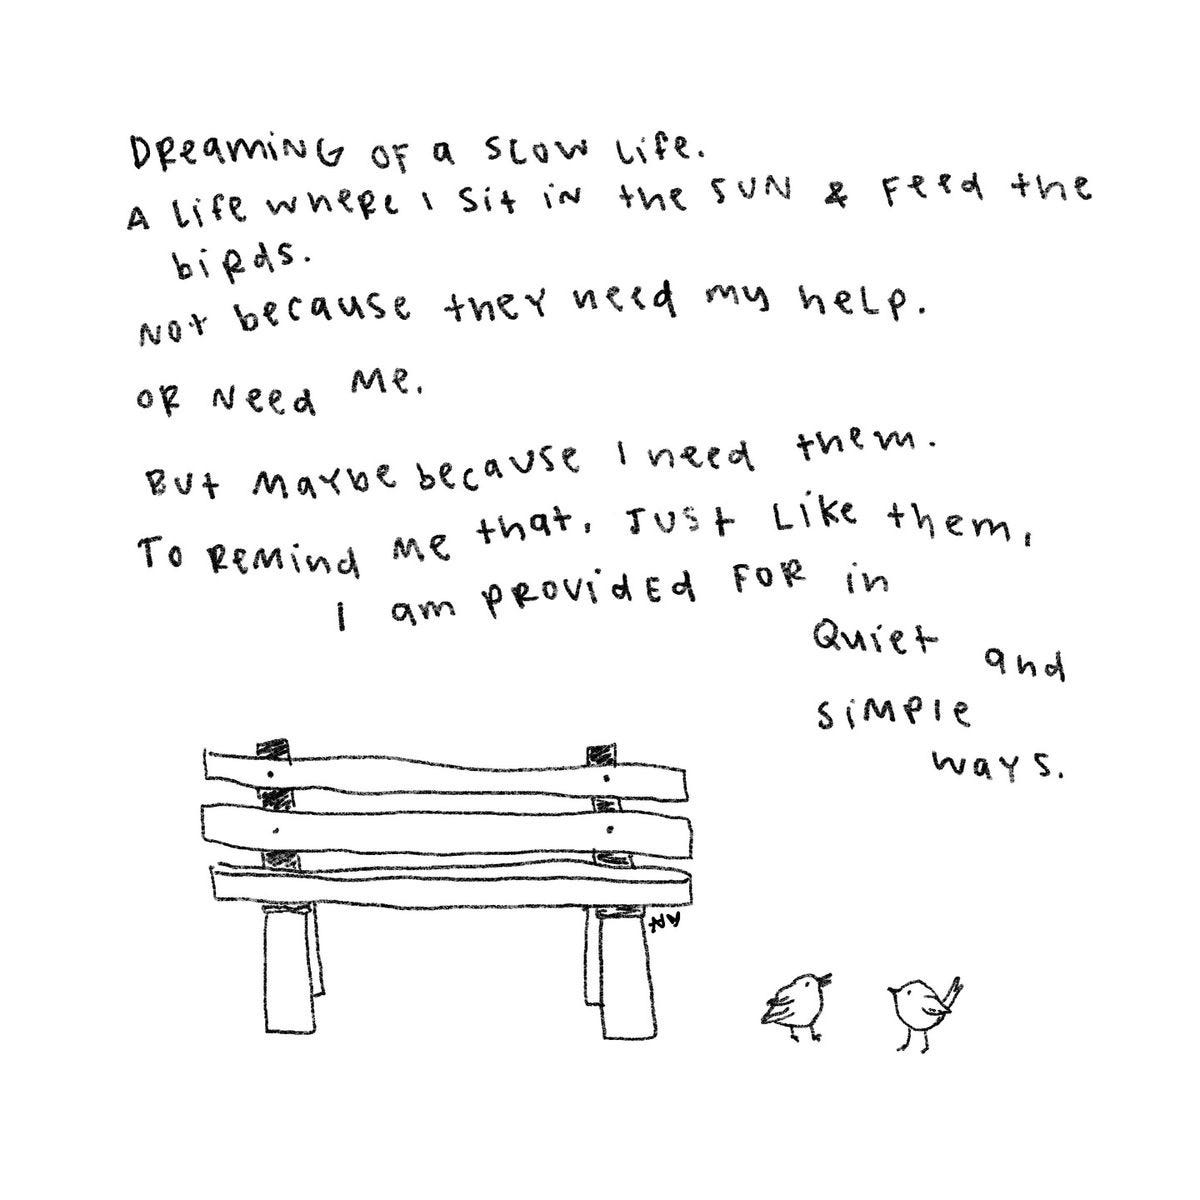 DReamiNG OF a SLOW Life.
A Life wheRe I sit iN the SUN & Feed the
biRds.
Not because theY need my heLp.
OR Need Me.
But MaYbe because I need them.
To ReMind Me that, JUSt Like them,
I am PROVidEd FOR in
Quiet and
SiMPle
waYs.